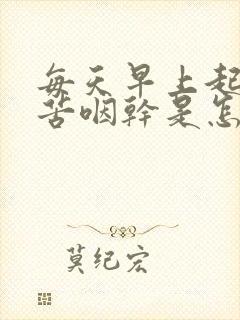 每天早上起
苦咽幹是怎
莫纪宏